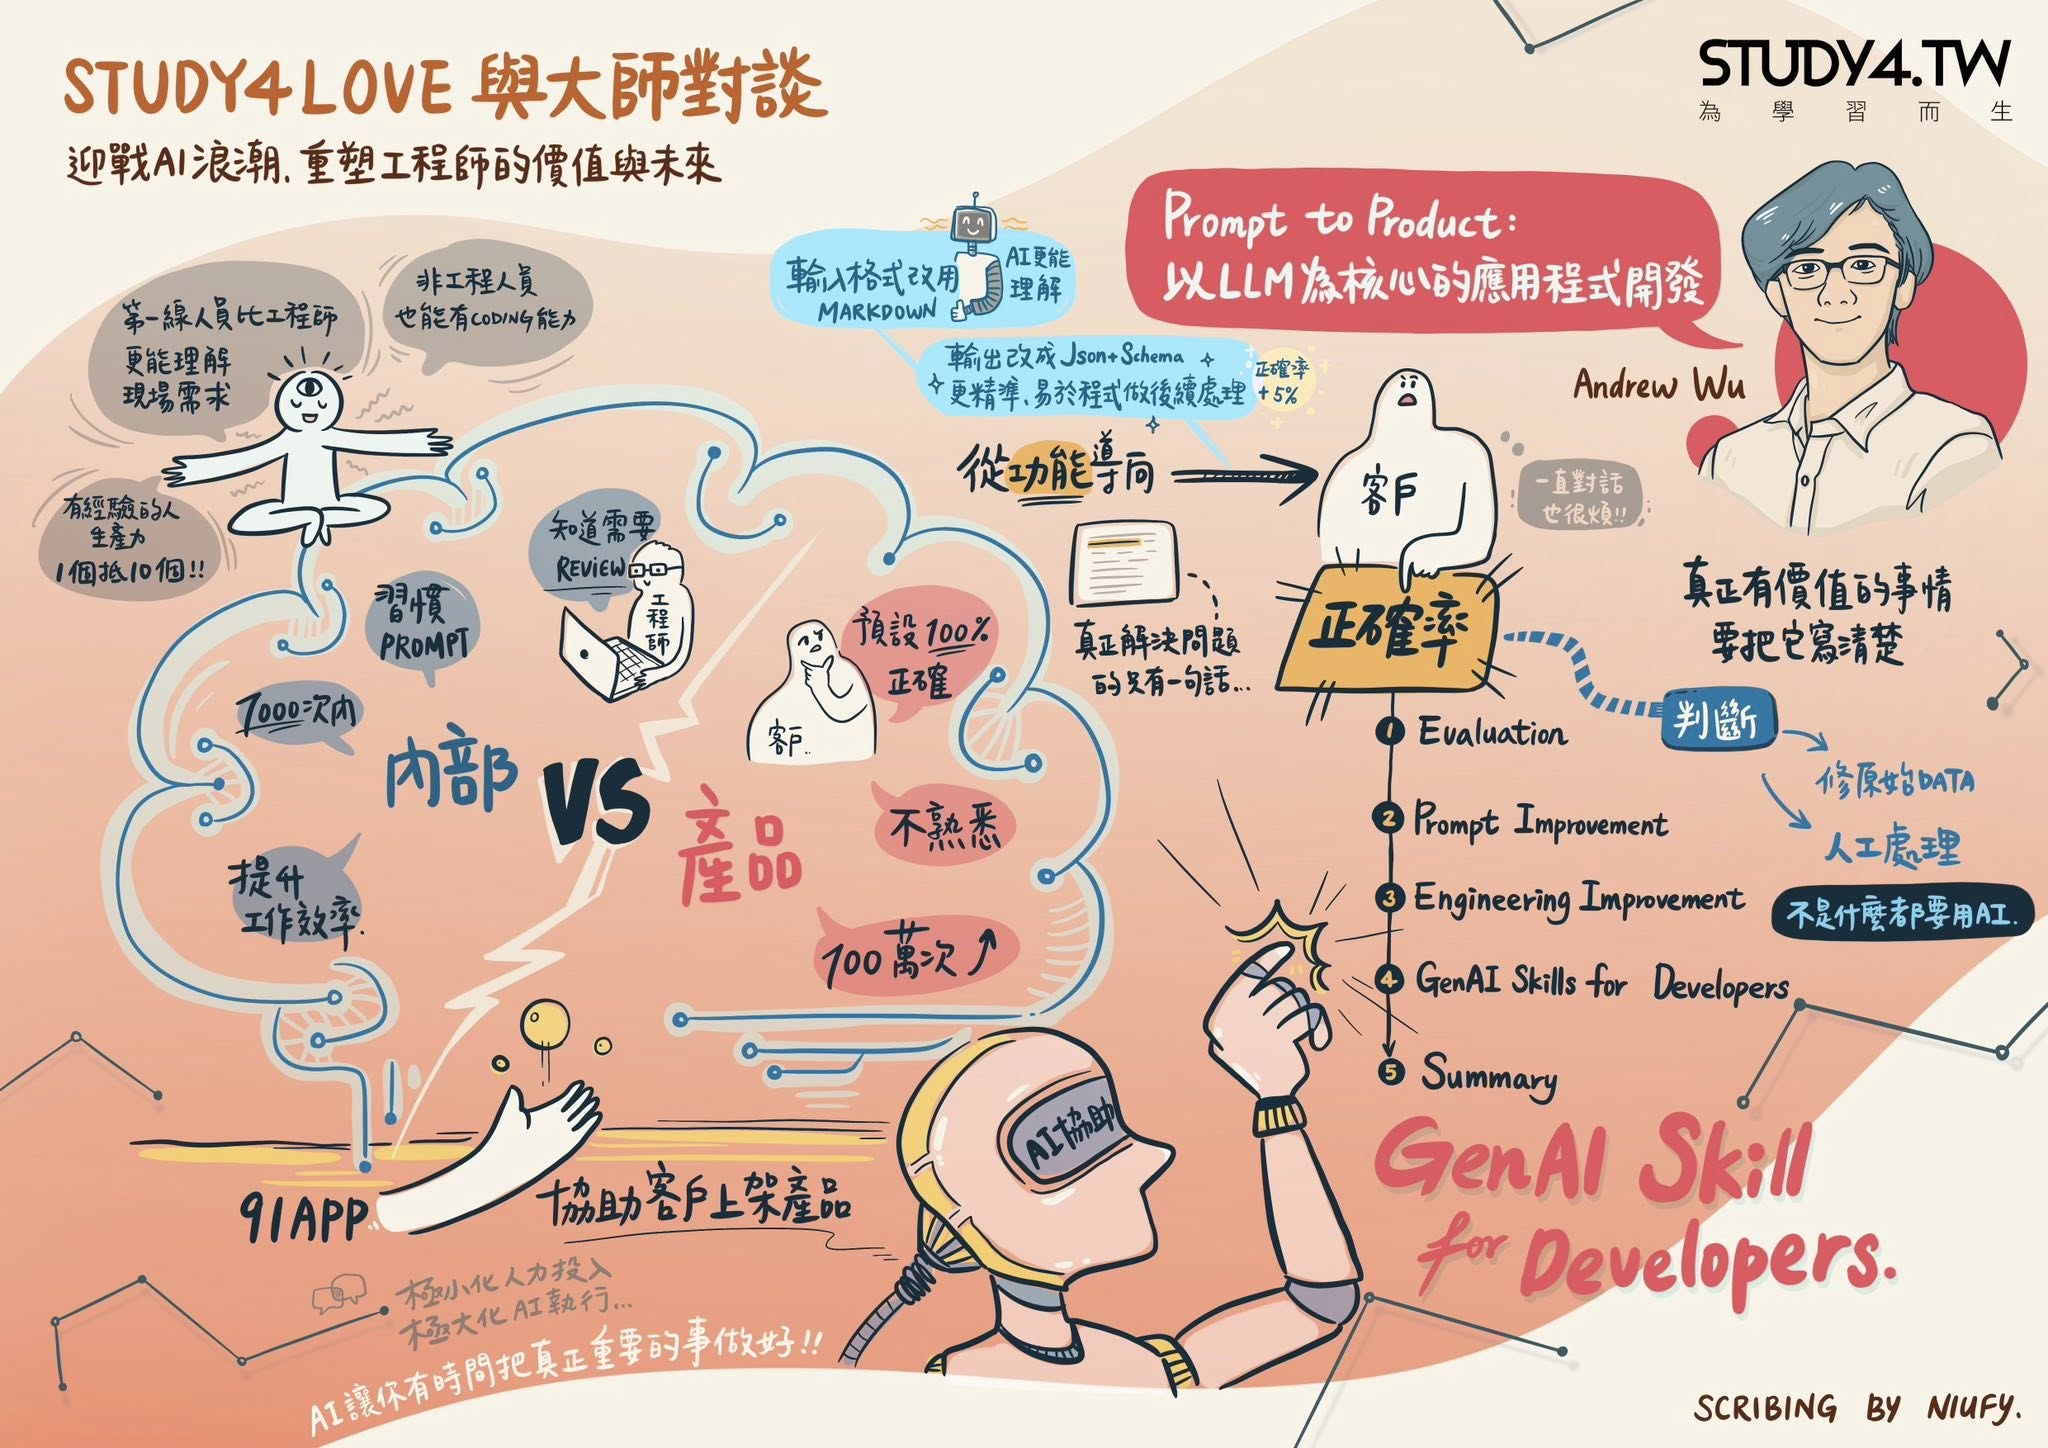 STUDY4LOVE 與大師對談
迎戰AI浪潮、重塑工程師的價值與未來
STUDY4.TW
為學習而生
Prompt to Product:
以LLM為核心的應用程式開發
Andrew Wu
第一線人員比工程師
更能理解
現場需求
非工程人員
也能有CODING能力
有經驗的人
生產力
1個抵10個!!
輸入格式改用
MARKDOWN
AI更能
理解
輸出改成Json+Schema
更精準、易於程式做後續處理
正確率
+5%
從功能導向
客戶
一直對話
也很煩!!
正確率
真正解決問題
的只有一句話...
真正有價值的事情
要把它寫清楚
判斷
修原始DATA
人工處理
不是什麼都要用AI.
習慣
PROMPT
知道需要
REVIEW
工程師
7000次內
提升
工作效率.
內部
VS
產品
預設100%
正確
客戶..
不熟悉
100萬次↗
1 Evaluation
2 Prompt Improvement
3 Engineering Improvement
4 GenAI Skills for Developers
5 Summary
91APP
協助客戶上架產品
AI協助
極小化人力投入
極大化AI執行...
AI讓你有時間把真正重要的事做好!!
GenAI Skill
for Developers.
SCRIBING BY NIUFY.